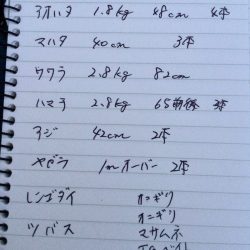 アオハタ 1.8kg 48cm 4本
マハタ 40cm 3本
ワラサ 2.8kg 82cm
ハマチ 2.8kg 65前後 3本
アジ 42cm 2本
ヤガラ 1mオーバー 2本
レンコダイ オニギリ
オニギリ
ツバス マサムネ